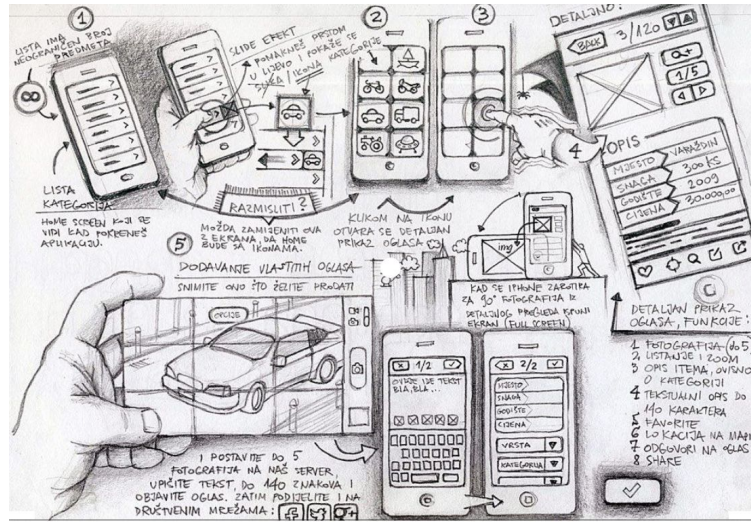 1
LISTA IMA
NEOGRANIČEN BROJ
PREDMETA
LISTA
KATEGORIJA
HOME SCREEN KOJI SE
VIDI KAD POKRENEŠ
APLIKACIJU.
SLIDE EFEKT
POMAKNEŠ PRSTOM
U LIJEVO I POKAŽE SE
SLIKA / IKONA KATEGORIJE
RAZMISLITI?
MOŽDA ZAMIJENITI OVA
2 EKRANA, DA HOME
BUDE SA IKONAMA.
2
3
KLIKOM NA IKONU
OTVARA SE DETALJAN
PRIKAZ OGLASA
4
DETALJNO:
BACK
3/120
1/5
OPIS
MJESTO VARAŽDIN
SNAGA 300 KS
GODIŠTE 2009
CIJENA 30.000,00
img
KAD SE IPHONE ZAROTIRA
ZA 90° FOTOGRAFIJA IZ
DETALJNOG PREGLEDA ISPUNI
EKRAN (FULL SCREEN)
DETALJAN PRIKAZ
OGLASA, FUNKCIJE:
1 FOTOGRAFIJA (do 5
2 LISTANJE I ZOOM
3 OPIS ITEMA, OVISNO
O KATEGORIJI
4 TEKSTUALNI OPIS DO
140 KARAKTERA
5 FAVORITE
6 LOKACIJA NA MAPI
7 ODGOVORI NA OGLAS
8 SHARE
5
DODAVANJE VLASTITIH OGLASA
SNIMITE ONO ŠTO ŽELITE PRODATI
OPCIJE
I POSTAVITE DO 5
FOTOGRAFIJA NA NAŠ SERVER,
UPIŠITE TEKST, DO 140 ZNAKOVA I
OBJAVITE OGLAS. ZATIM PODIJELITE I NA
DRUŠTVENIM MREŽAMA:
1/2
OVDJE IDE TEKST
BLA, BLA...
2/2
MJESTO
SNAGA
GODIŠTE
CIJENA
VRSTA
KATEGORIJA